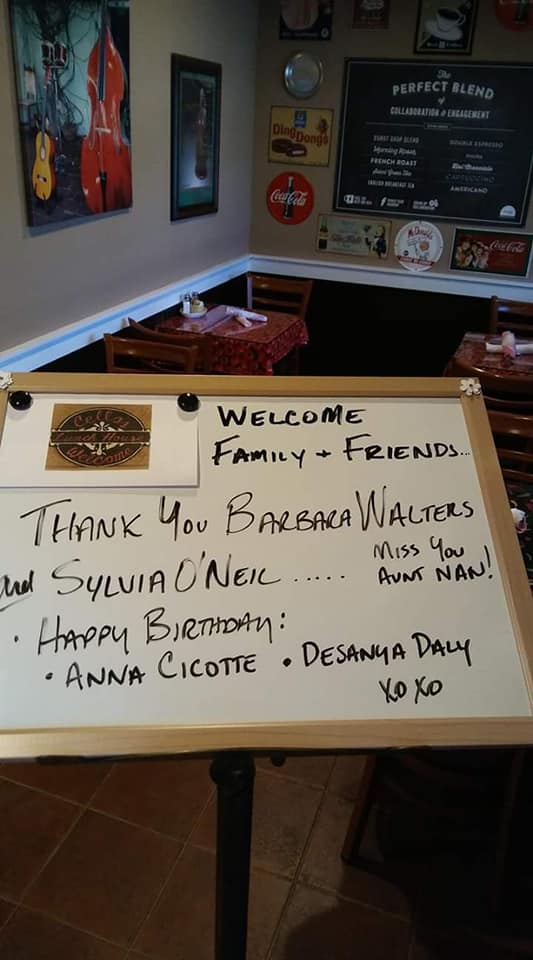 Ding Dongs
Coca-Cola
The
PERFECT BLEND
of
COLLABORATION & ENGAGEMENT
DONUT SHOP BLEND
FRENCH ROAST
ENGLISH BREAKFAST TEA
DOUBLE ESPRESSO
Hot Chocolate
CAPPUCCINO
AMERICANO
McDonald's
Coca-Cola
Cella's
Lunch House
Welcome
WELCOME
FAMILY + FRIENDS...
THANK YOU BARBARA WALTERS
and SYLVIA O'NEIL .....
MISS YOU
AUNT NAN!
• HAPPY BIRTHDAY:
• ANNA CICOTTE • DESANYA DALY
XO XO